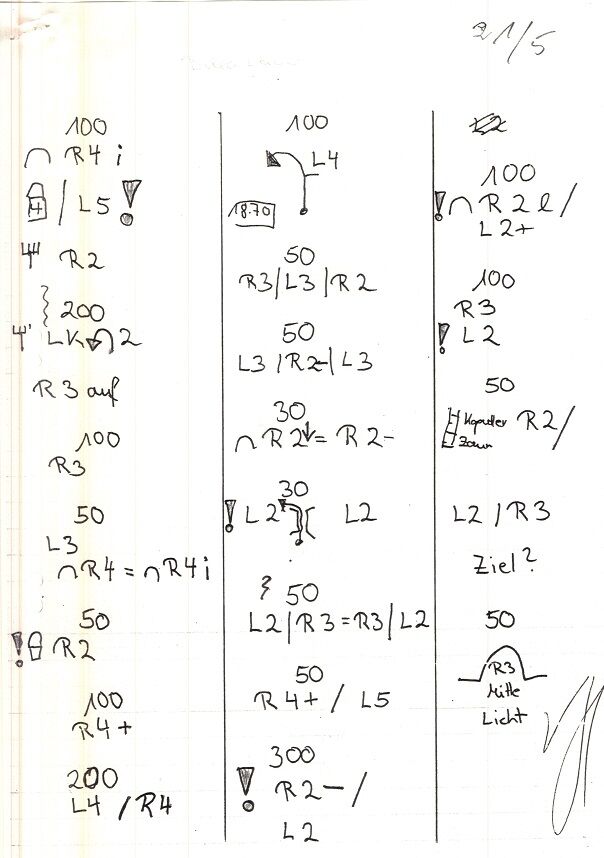 21/5
100
∩ R4 i
/ L5 !
R2
200
LK 2
R3 auf
100
R3
50
L3
∩R4 = ∩R4 i
50
! R2
100
R4+
200
L4 / R4
100
L4
18.70
50
R3/L3/R2
50
L3/R2-/L3
30
∩ R2↓= R2-
30
! L2 L2
50
L2/R3=R3/L2
50
R4+ / L5
300
! R2-/
L2
100
! ∩ R2 l/
L2+
100
R3
! L2
50
R2/
Zaun
L2 / R3
Ziel?
50
R3
Mitte
Licht